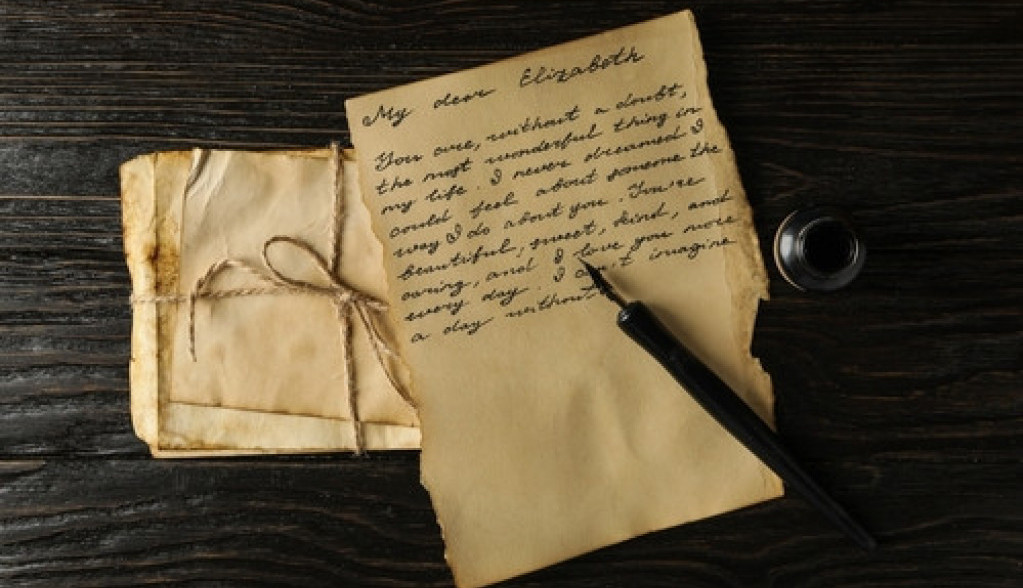 My dear Elizabeth
You are, without a doubt,
the most wonderful thing in
my life. I never dreamed I
could feel about someone the
way I do about you. You're
beautiful, sweet, kind, and
caring, and I love you more
every day. I can't imagine
a day without